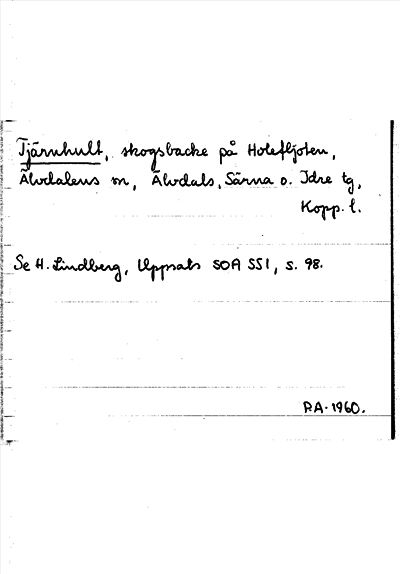 Tjärnhult, skogsbacke på Holefljoten,
Älvdalens sn, Älvdals, Särna o. Idre tg,
Kopp. l.
Se H. Lindberg, Uppsats SOA 551, s. 98.
R.A. 1960.